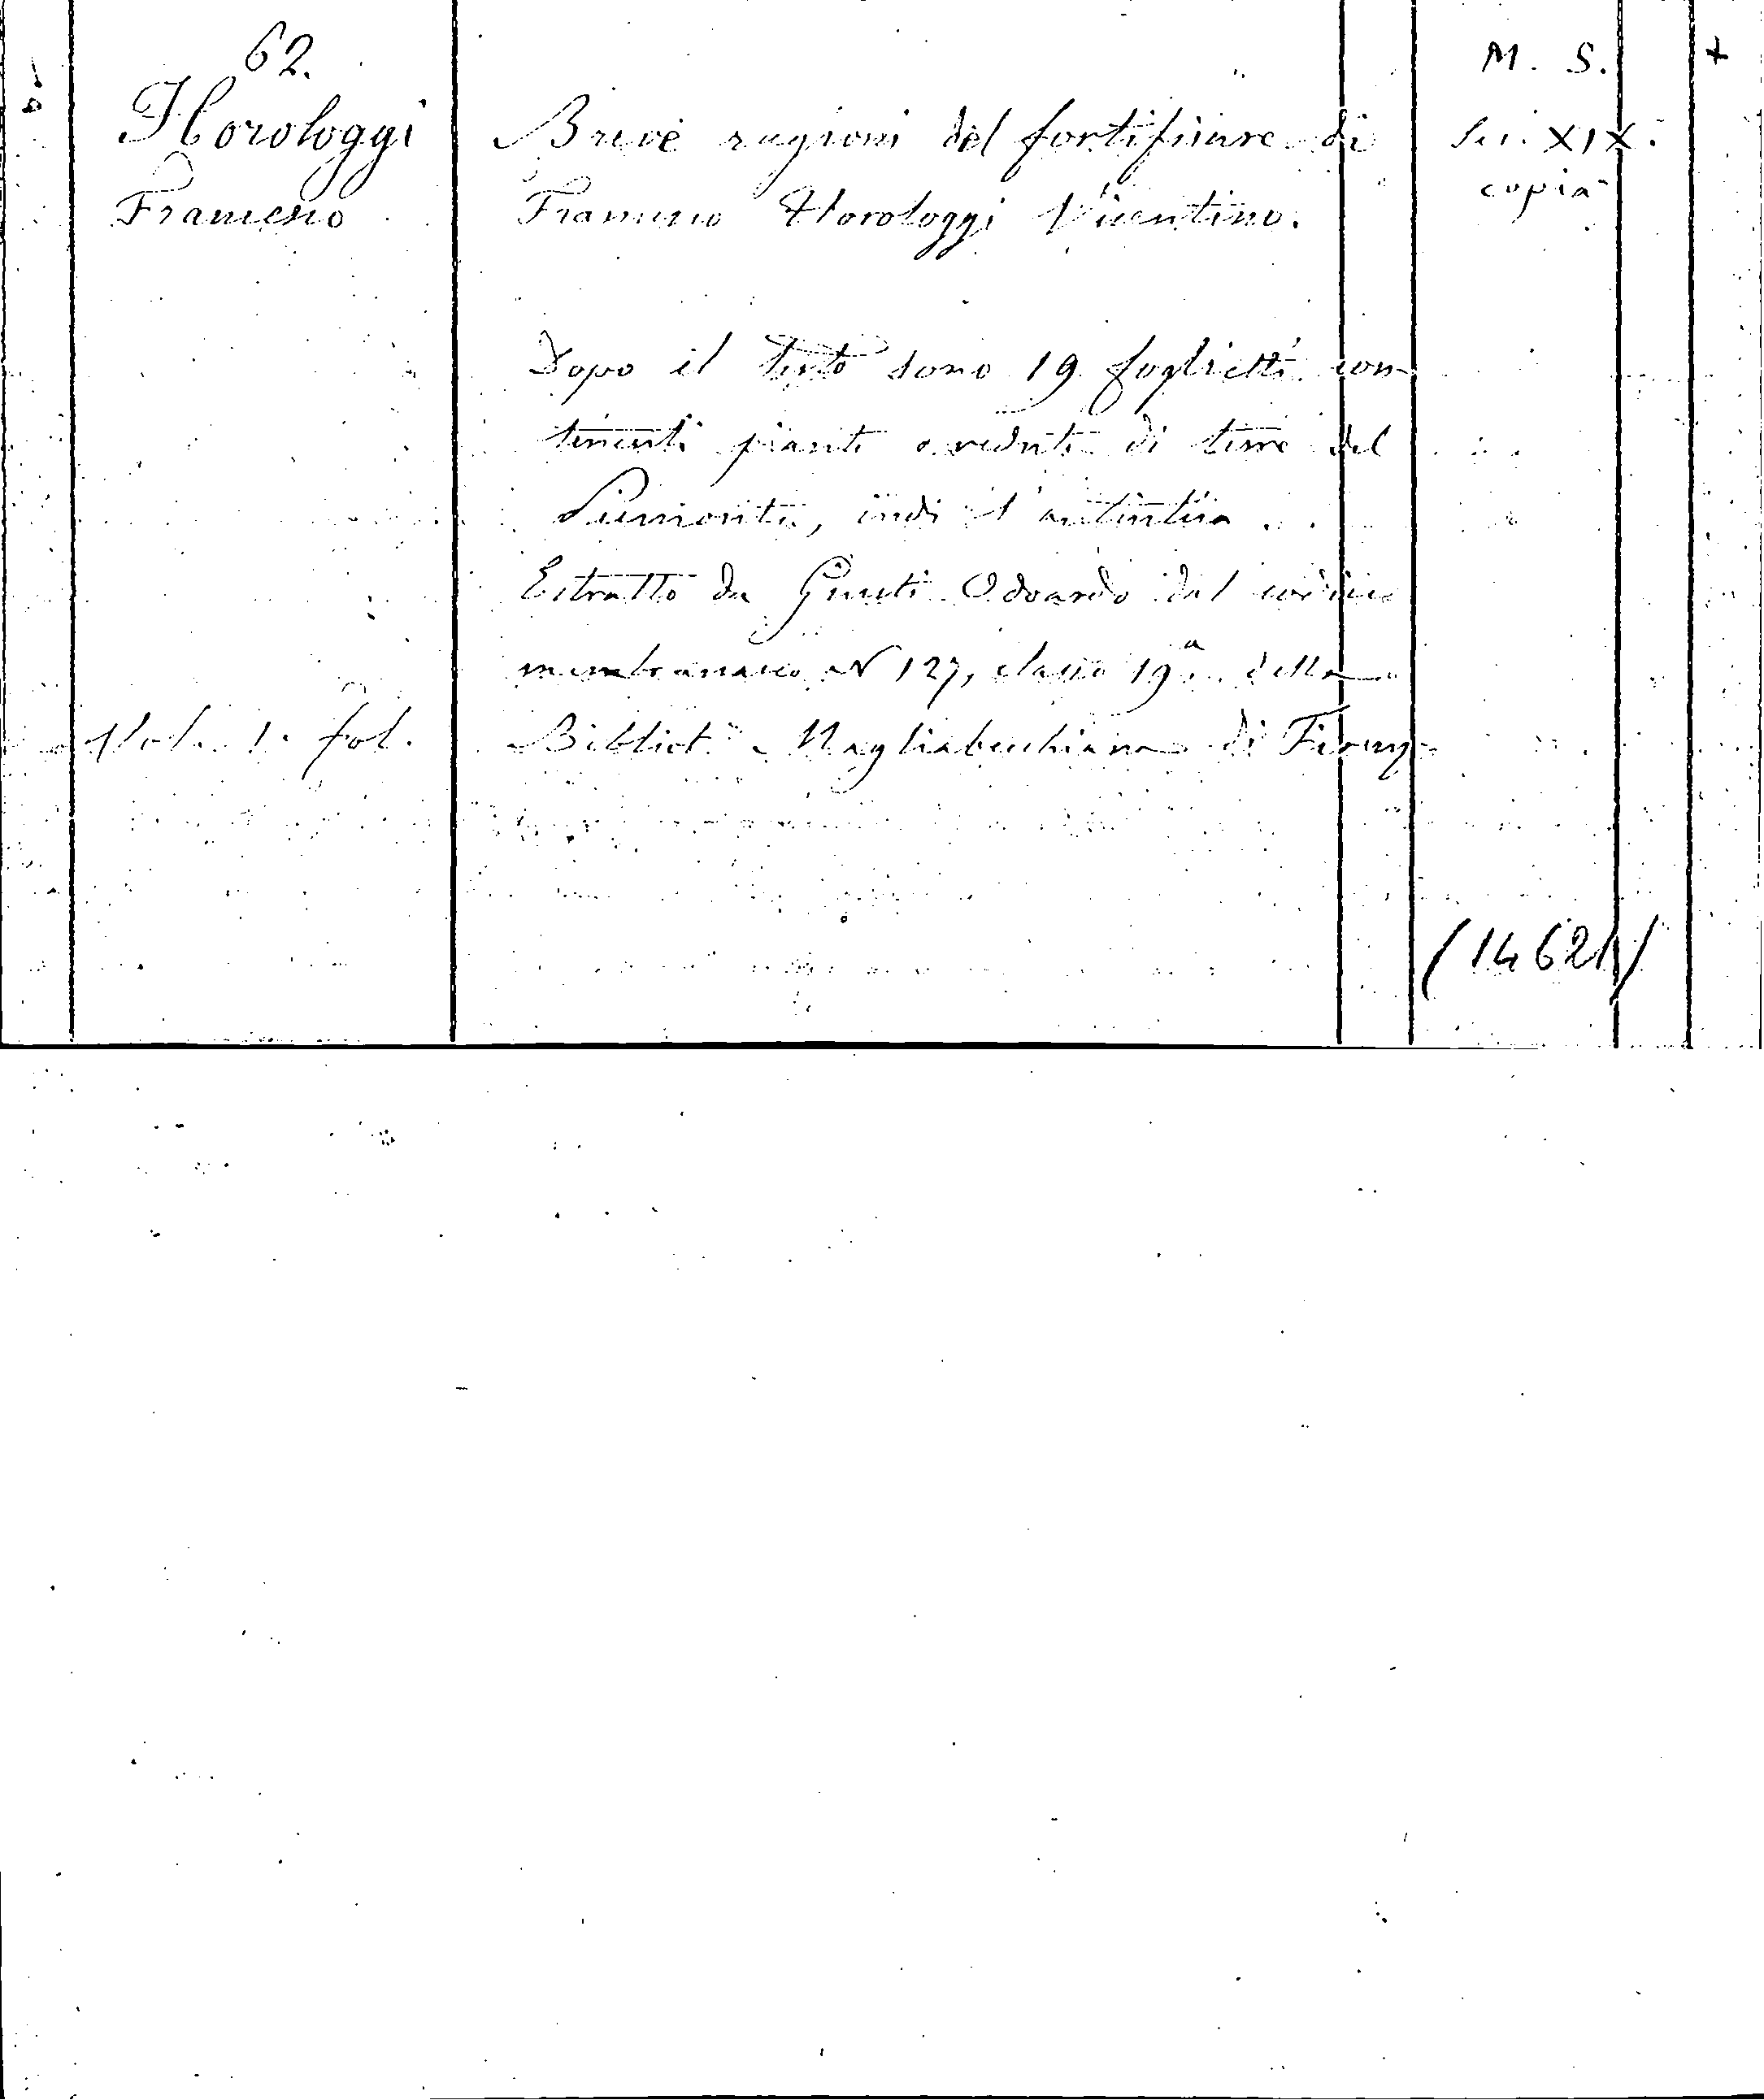 62.
M. S.
Horologgi
Francesco
Breve ragioni del fortificare di
Francesco Horologgi Vicentino.
Sec. XIX.
copia
Dopo il testo sono 19 foglietti con-
tenenti piante o vedute di terre del
Piemonte, indi l'autentica.
Estratto da Giusti Odoardo dal codice
membranaceo N 127, classe 19a. della
Vol. 1. fol.
Bibliot.a Magliabecchiana di Firenz
(14621)